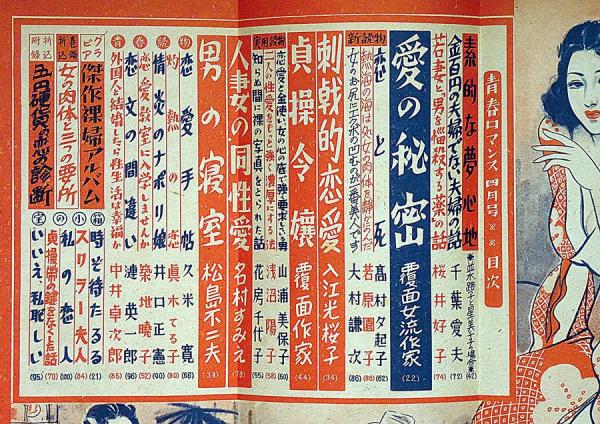 青春ロマンス 四月号 目次
素的な夢心地 千葉愛夫 (72)
金百円の夫婦でない夫婦の話
若妻と、男を悩殺する薬の話 桜井好子 (74)
愛の秘密 覆面女流作家 (22)
新読物
恋と死 高村夕起子 (62)
熱海の海は処女の肉体を
若原園子 (88)
女のお尻にエクボの凹むのが一番美人です 大村謙次 (86)
刺戟的恋愛 入江光桜子 (34)
貞操令嬢 覆面作家 (44)
実用読物
恋愛と金使い女の心の底で強く要求しない男 山浦美保子 (60)
二人の性愛をもっと強く濃厚にする法 浅沼陽子 (58)
知らぬ間に裸の写真をとられた話 花房千代子 (55)
人妻の同性愛 名村すみえ (78)
男の寝室 松島不二夫 (38)
青春読物
恋愛手帖 久米寛 (66)
灼熱の恋 真木てる子 (80)
恋愛教室に入学しませんか 築地曉子 (52)
情炎のナポリ娘 井口正憲 (90)
恋文の間違い 漣英一郎 (96)
外国人と結婚したら性生活は幸福か 中井卓次郎 (85)
グラビア 傑作裸婦アルバム
巻頭折込 女の肉体と三つの要所
折込附録 五円硬貨の恋の診断
時ぞ待たるる (21)
小 スリラー夫人 (84)
の 私の恋人 (100)
貞操帯の鍵をなくした話 (70)
室 いいえ、私恥しい (95)